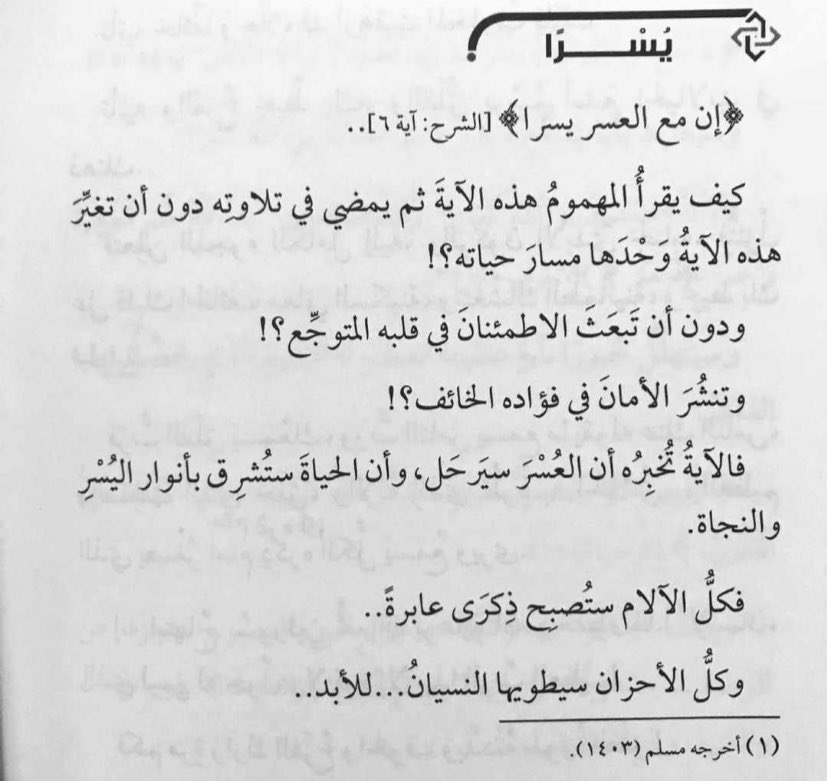 يُسْــــرًا
﴿إن مع العسر يسرا﴾ [الشرح: آية ٦]..
كيف يقرأُ المهمومُ هذه الآيةَ ثم يمضي في تلاوتِه دون أن تغيِّرَ
هذه الآيةُ وَحْدَها مسارَ حياته؟!
ودون أن تَبعَثَ الاطمئنانَ في قلبه المتوجِّع؟!
وتنشُرَ الأمانَ في فؤاده الخائف؟!
فالآيةُ تُخبِرُه أن العُسْرَ سيَرحَل، وأن الحياةَ ستُشرِق بأنوار اليُسْرِ
والنجاة.
فكلُّ الآلام ستُصبِح ذِكرَى عابرةً..
وكلُّ الأحزان سيطويها النسيانُ...للأبد..
(١) أخرجه مسلم (١٤٠٣).